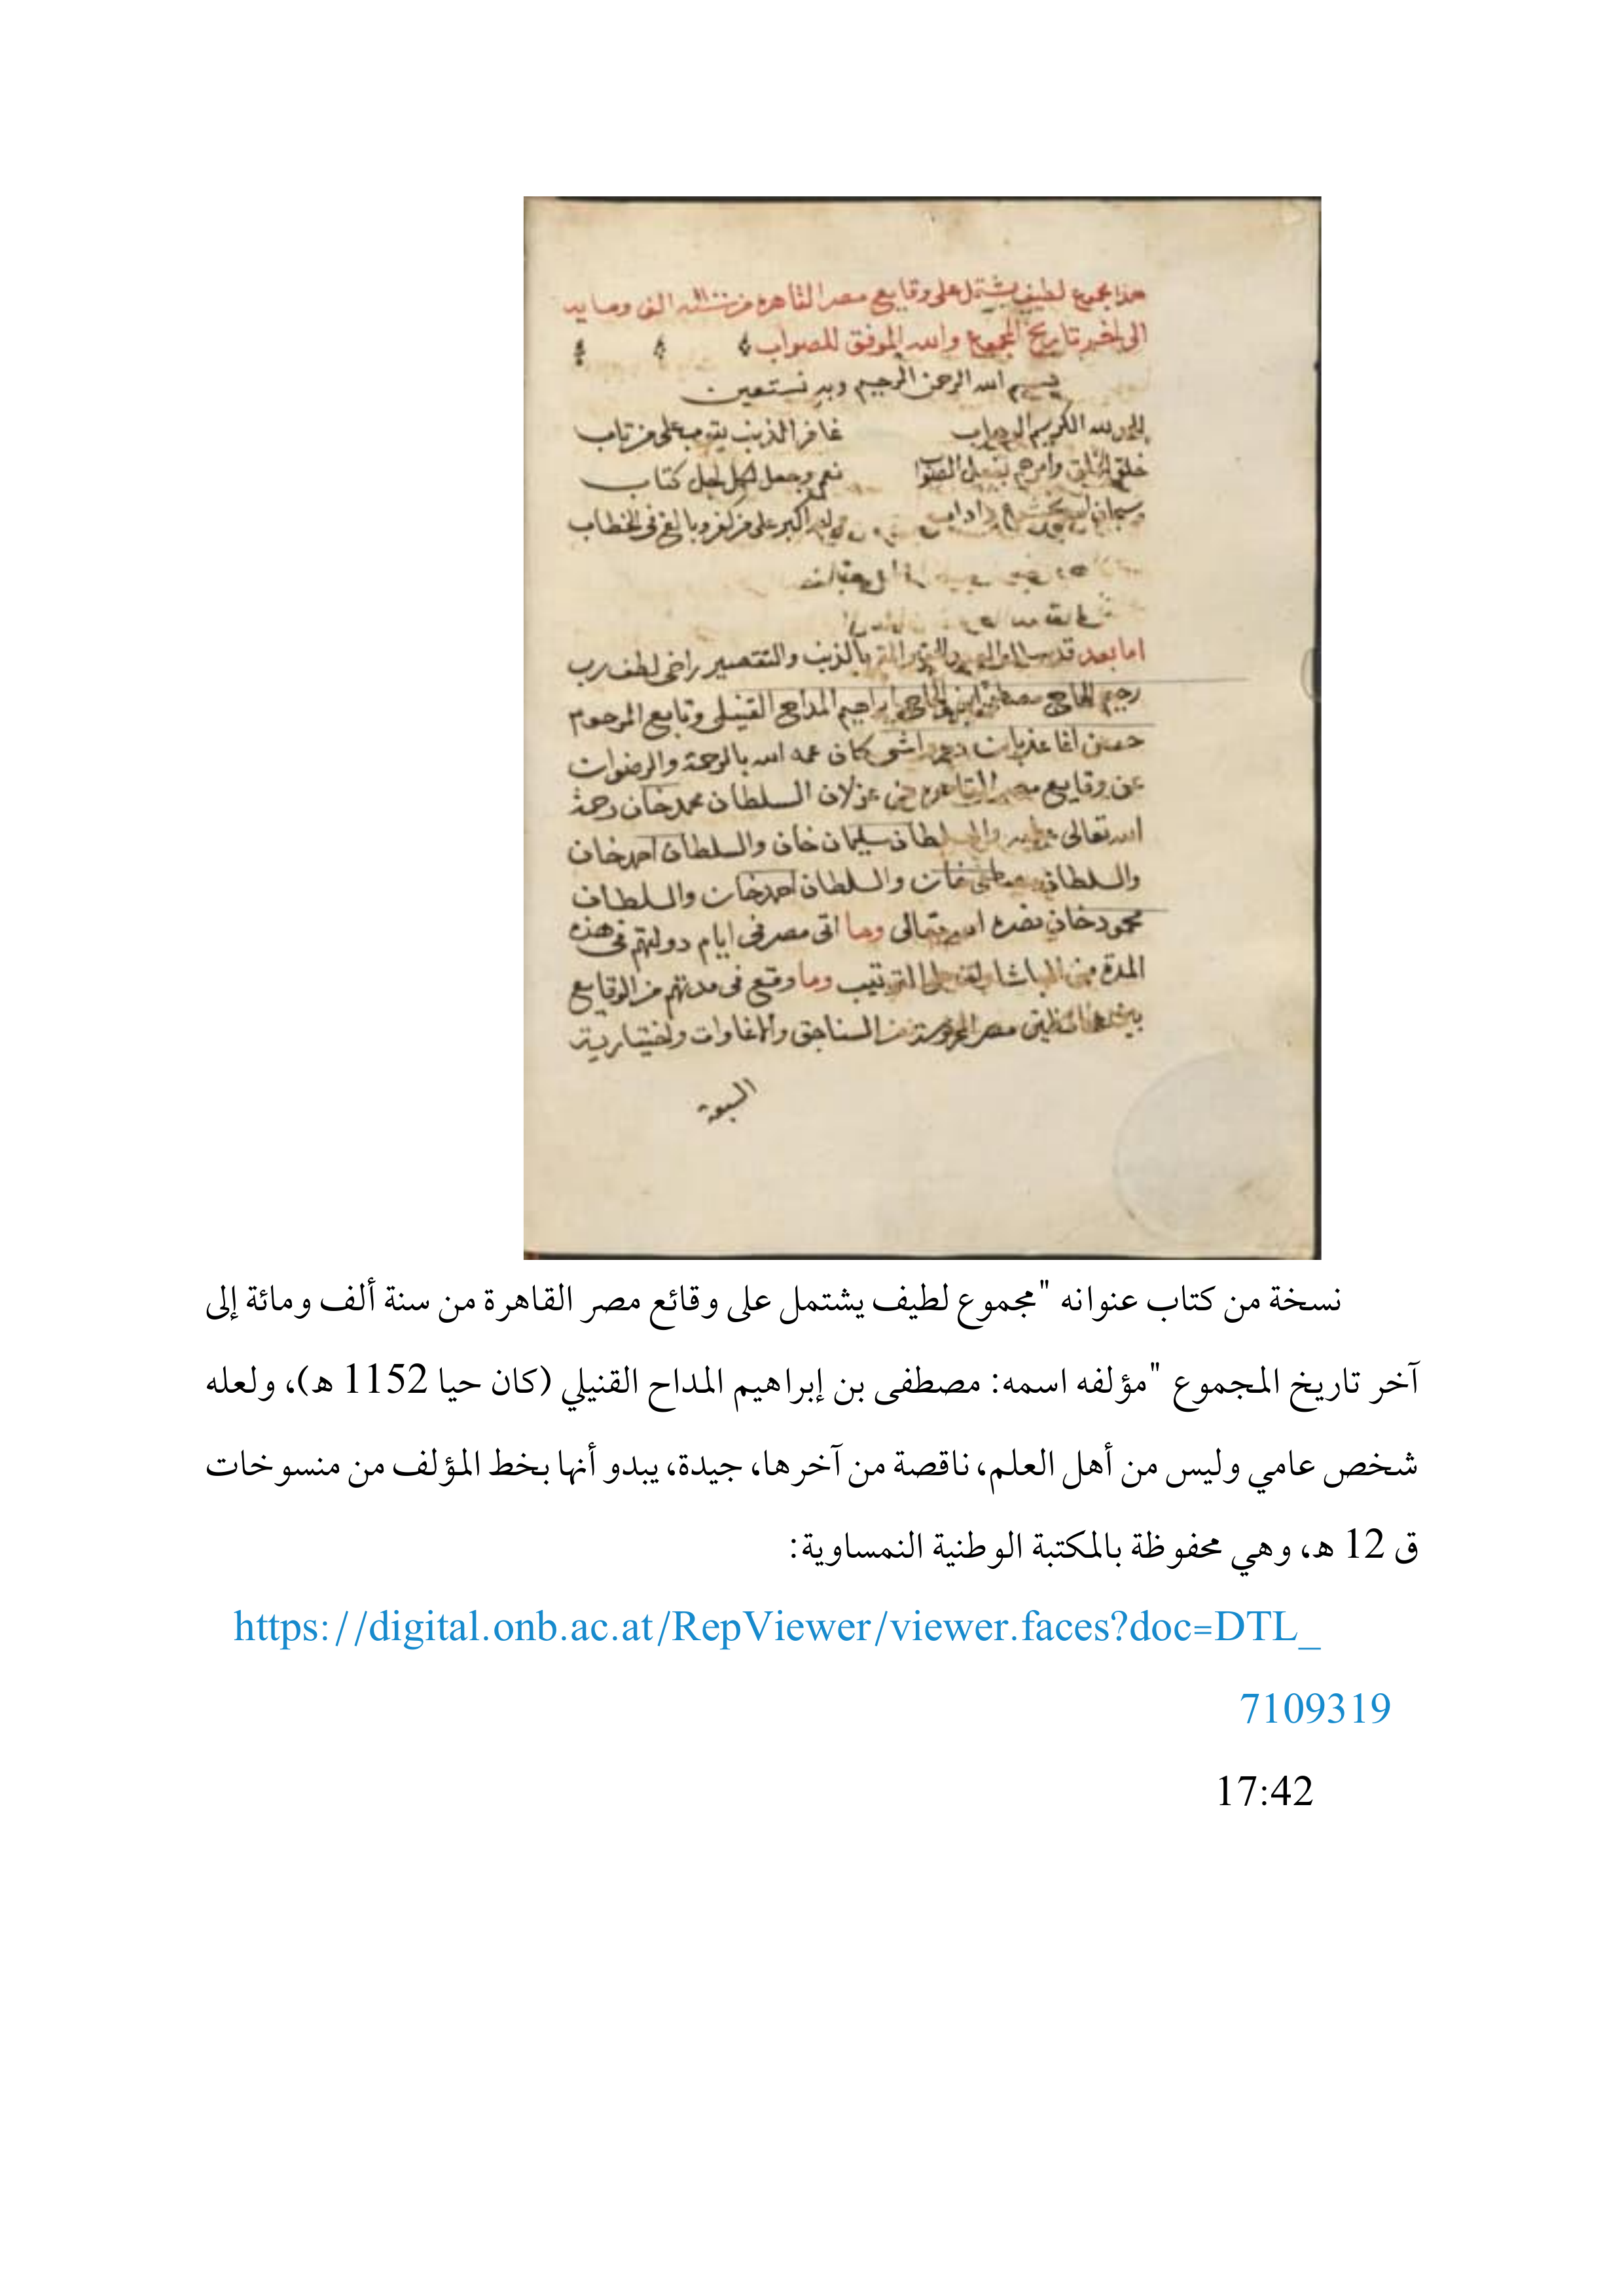 هذا مجموع لطيف يشتمل على وقايع مصر القاهرة من سنة الف وماية
الى اخر تاريخ المجموع والله الموفق للصواب
بسم الله الرحمن الرحيم وبه نستعين
لله الكريم الوهاب غافر الذنب يتوب على من تاب
خلق الخلق وامرهم بفعل الصوا نعم وجعل لكل اجل كتاب
اكبر على من كفر وبالغ فى الخطاب
اما بعد بالذنب والتقصير راجى لطف رب
رحيم الحاج مصطفى ابن الحاج ابراهيم المداح القنيلى وتابع المرحوم
حسن اغا عزبان كان عمه الله بالرحمة والرضوان
عن وقايع مصر القاهرة السلطان محمد خان رحمة
الله تعالى عليه والسلطان سليمان خان والسلطان احمد خان
والسلطان مصطفى خان والسلطان احمد خان والسلطان
محمود خان نصره الله تعالى وما اتى مصر فى ايام دولتهم فى هذه
المدة من الباشا الترتيب وما وقع فى مدتهم من الوقايع
مصر المحروسة من السناجق والاغاوات واختيارية
السبعة
نسخة من كتاب عنوانه "مجموع لطيف يشتمل على وقائع مصر القاهرة من سنة ألف ومائة إلى
آخر تاريخ المجموع "مؤلفه اسمه: مصطفى بن إبراهيم المداح القنيلي (كان حيا 1152 هـ)، ولعله
شخص عامي وليس من أهل العلم، ناقصة من آخرها، جيدة، يبدو أنها بخط المؤلف من منسوخات
ق 12 هـ، وهي محفوظة بالمكتبة الوطنية النمساوية:
https://digital.onb.ac.at/RepViewer/viewer.faces?doc=DTL_
7109319
17:42